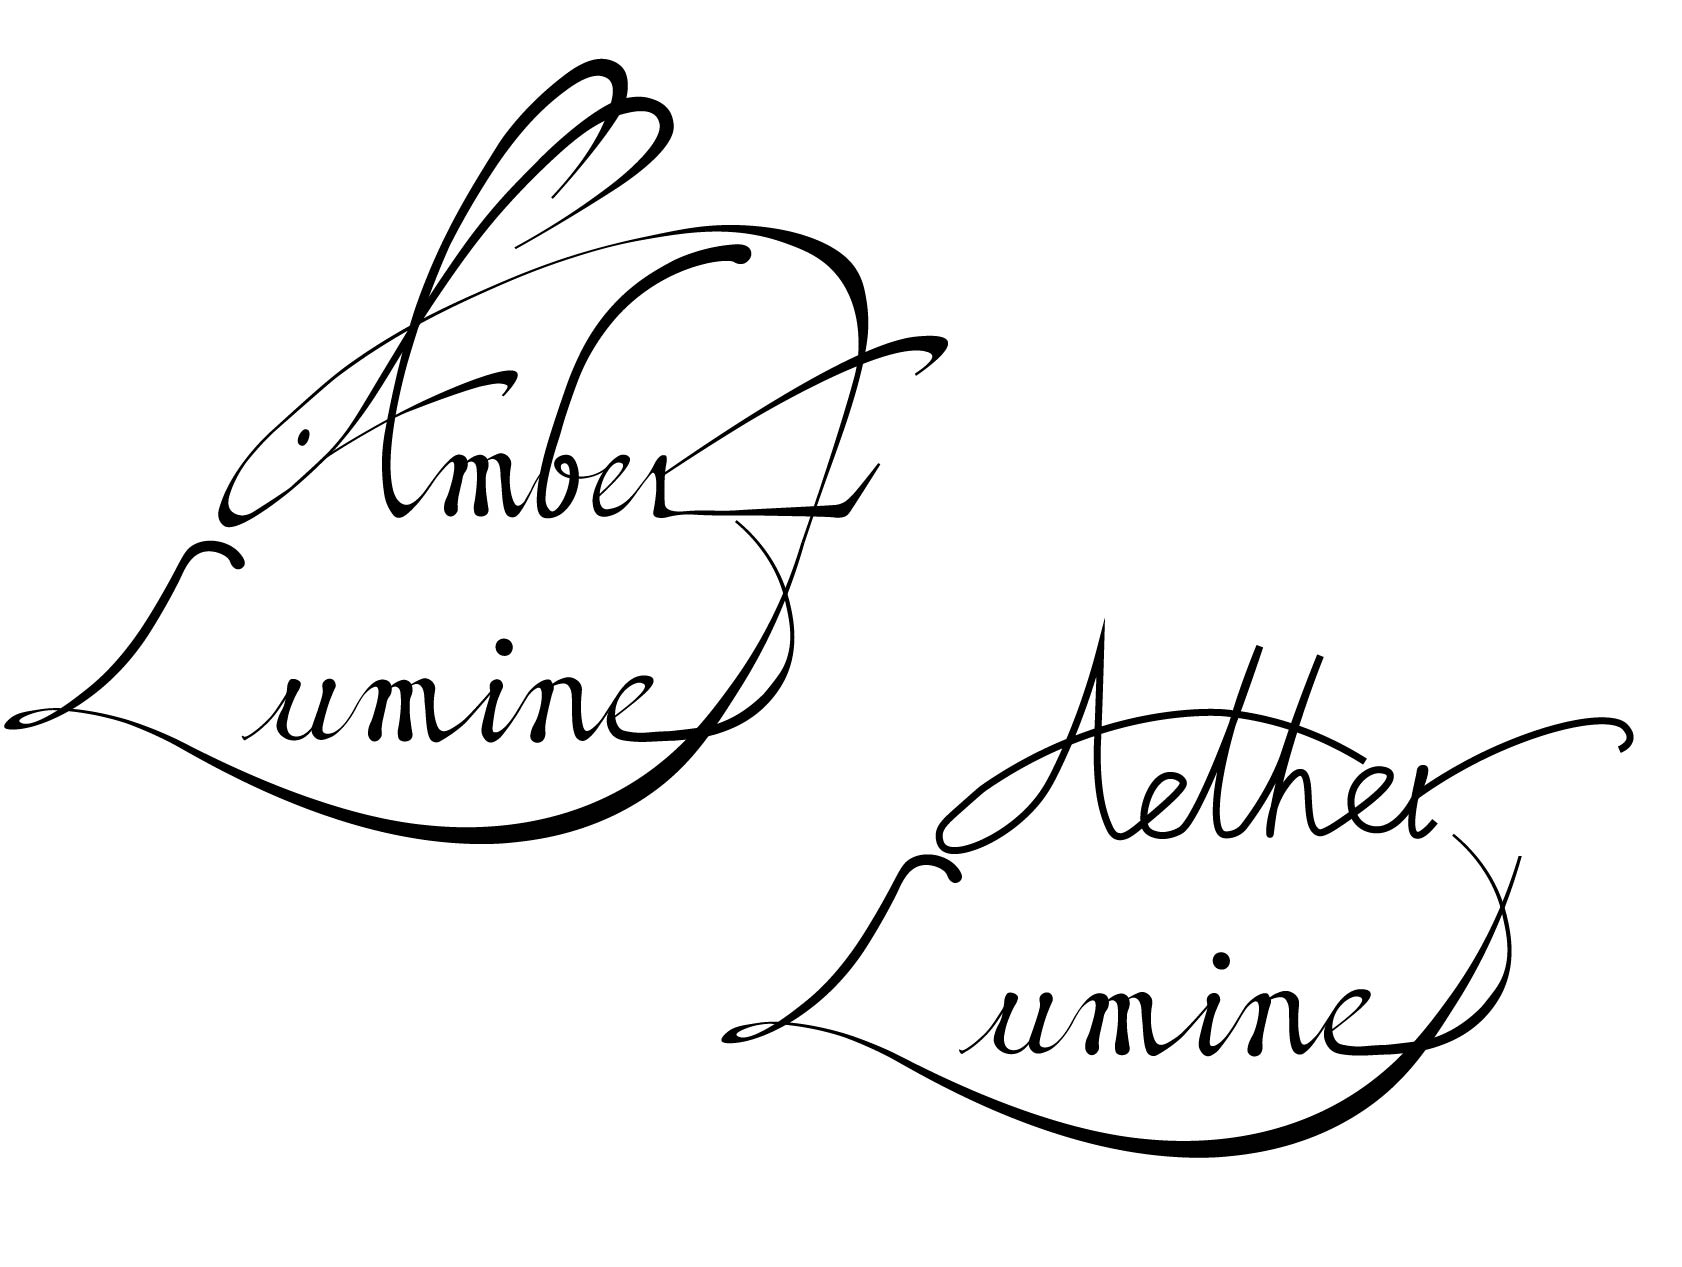 Amber
Lumine
Aether
Lumine